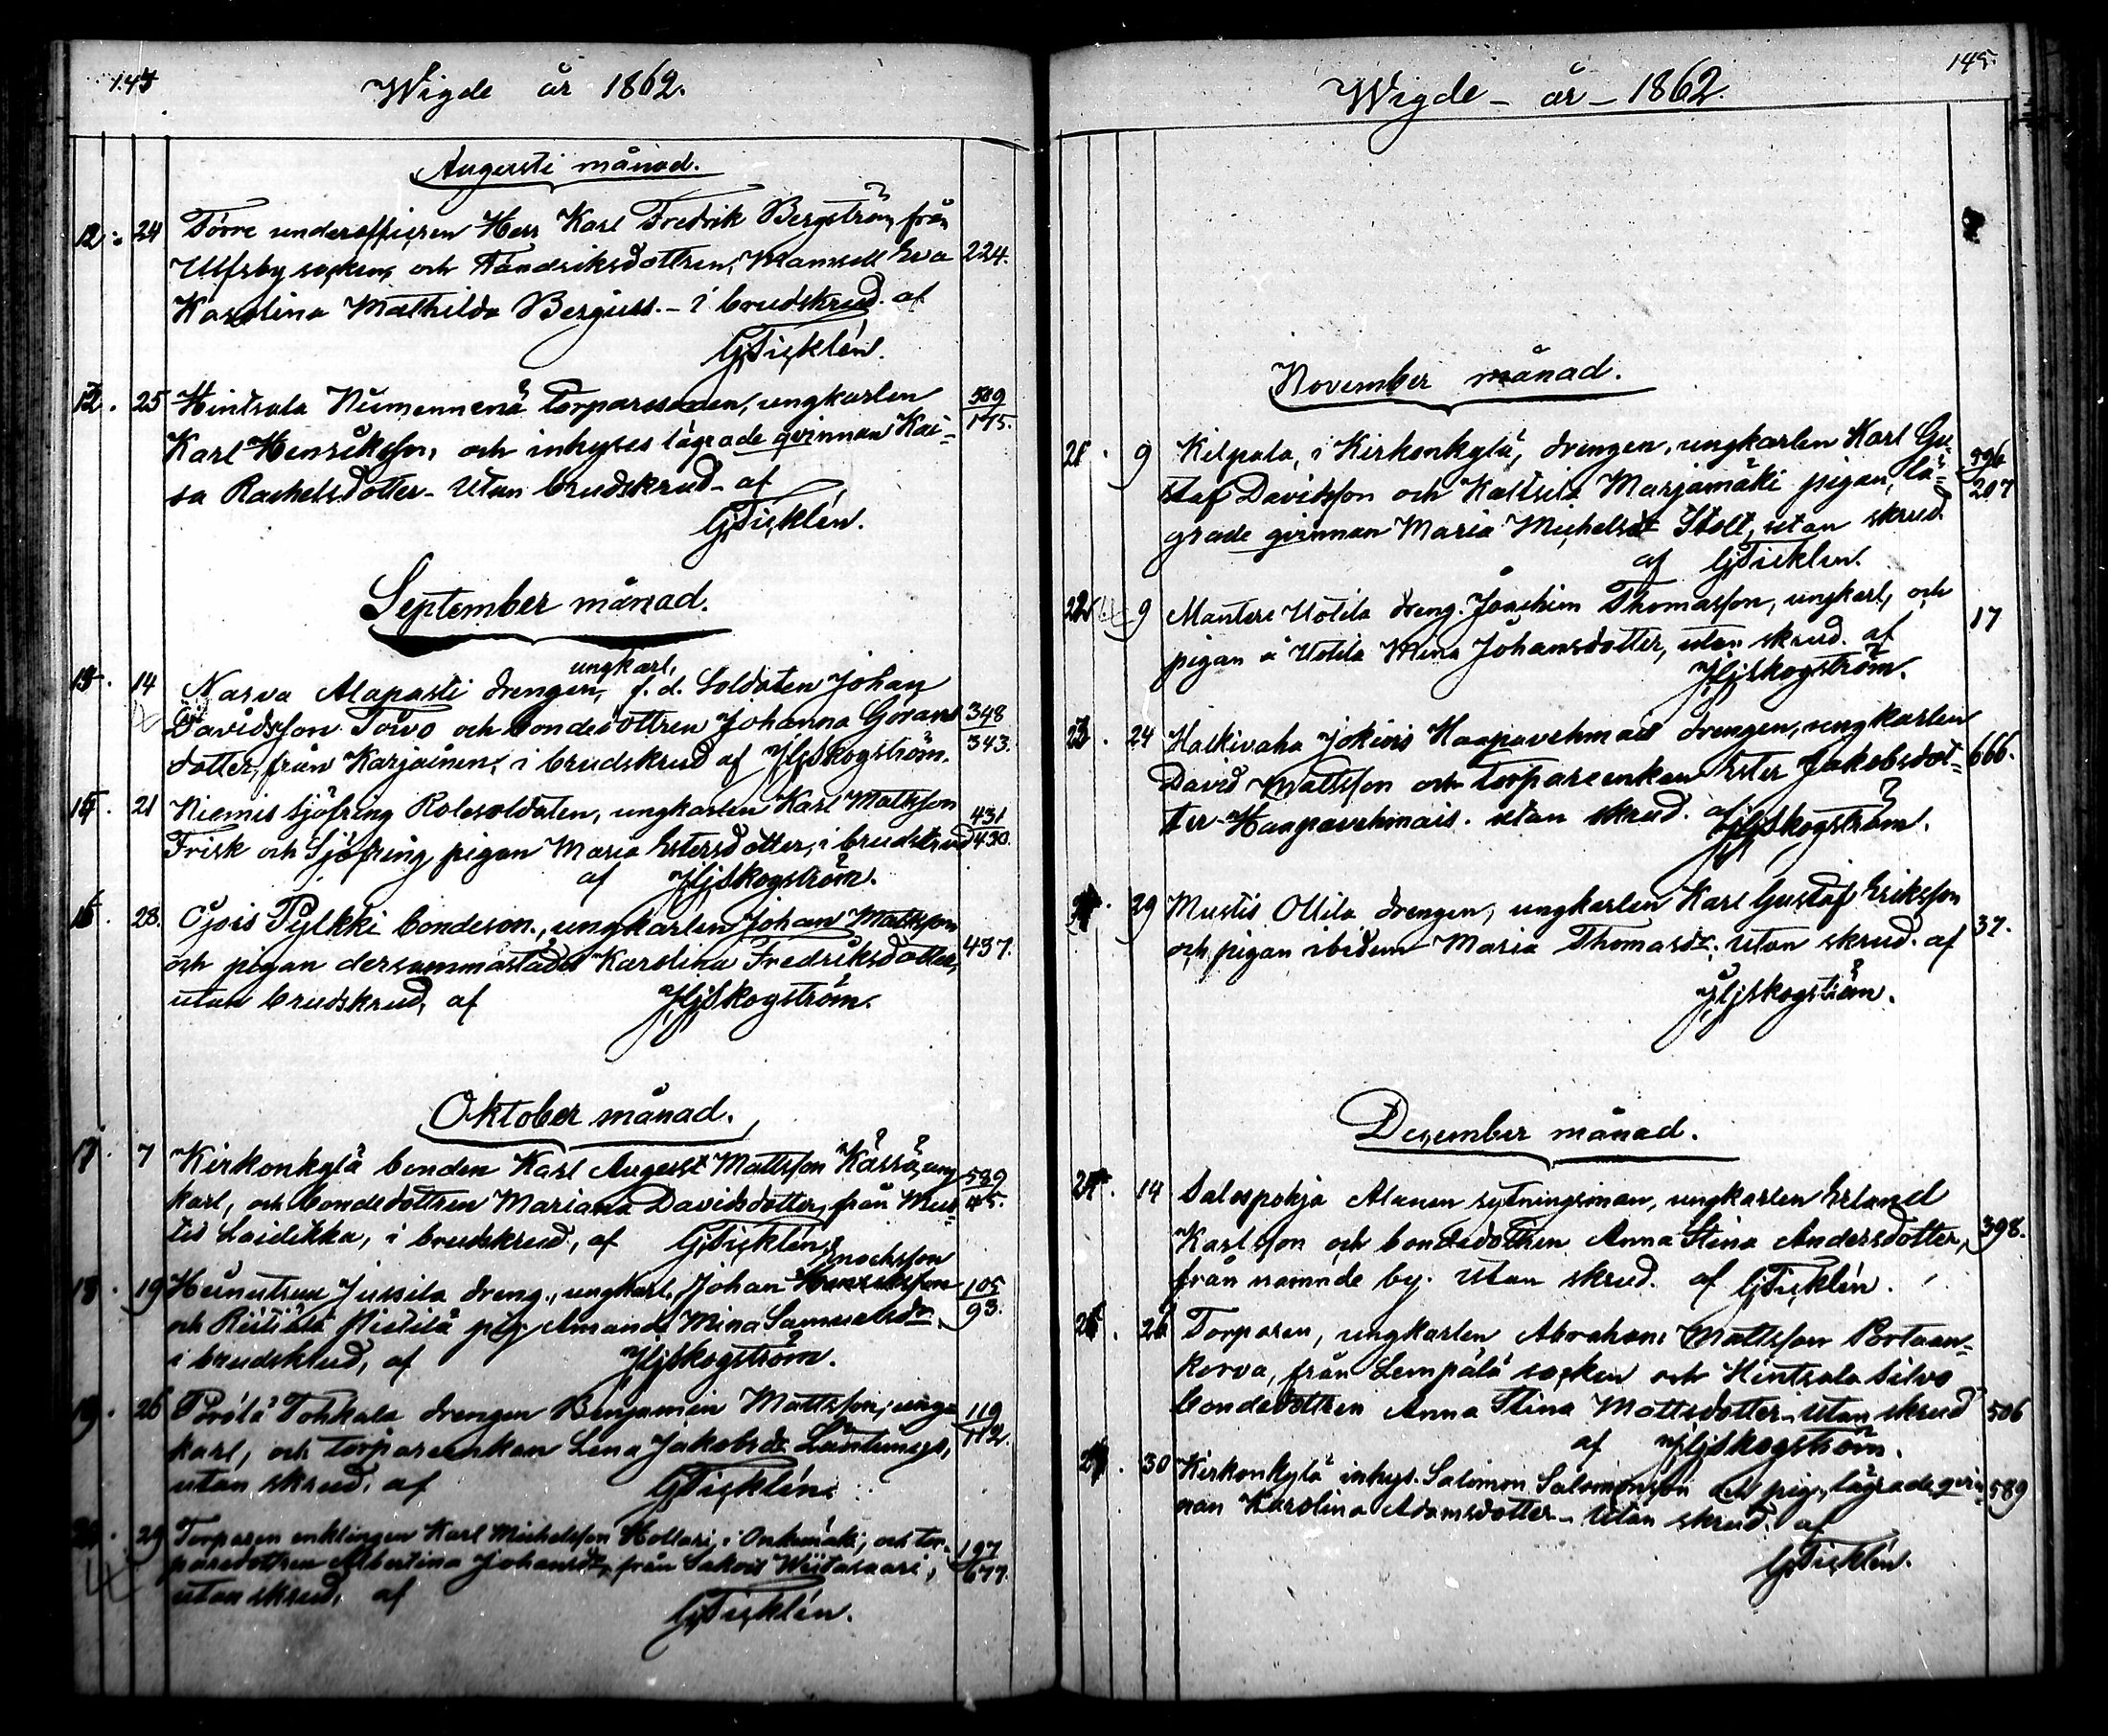 143
Wigde år 1862.
Augusti månad.
12. 24 Förre underofficeren Herr Karl Fredrik Bergström, från
Ulfsby socken, och Handriksdottren, Mamsell Eva 224.
Karolina Mathilda Bergius. - i brudskrud. af
GTicklén.
12. 25 Hintsala Niemennenä Torparesonen, ungkarlen 589
Karl Henriksson, och inhyses lägrade qvinnan Kai= 175.
sa Rachelsdotter - Utan brudskrud - af
GTicklén.
September månad.
ungkarl,
13. 14 Narva Alapasti drengen, f. d. Soldaten Johan
Davidsson Torvo och bondedottren Johanna Görans 348
dotter, från Karjainen, i brudskrud af Skogström. 343.
21 Niemis Sjöfring Rolesoldaten, ungkarlen Karl Mattsson 431
Frisk och Sjöfring pigan Maria Estersdotter, i brudskrud 430.
af Skogström.
28. Ojois Pylkki bondeson., ungkarlen Johan Mattsson
och pigan dersammastädes Karolina Fredriksdotter, 437.
utan brudskrud, af Skogström.
Oktober månad.
17. 7 Kirkonkylä bonden Karl August Mattsson Kässä, ung 589
karl, och bondedottren Mariana Davidsdotter, från Mus= 45.
tis Laidikka, i brudskrud, af GTicklén.
Enochsson
18. 19 Jussila dreng., ungkarl. Johan Henriksson 105
och pig. Amanda Mina Samuelsdr. 93.
i brudskrud, af Skogström.
19. 26 Pörölä Tohkala drengen Benjamin Mattsson, ung= 119
karl, och torpareenkan Lena Jakobsdr 112.
utan skrud. af GTicklén.
20. 29 Torparen enklingen Karl Michelsson Hollari, i Onkemäki, och tor= 197
paredottren Albertina Johansdr, från Sakois Wiitasaari, 677.
utan skrud, af
GTicklén.
145
Wigde - år - 1862.
November månad.
21. 9 Kilpala, i Kirkonkylä, drengen, ungkarlen Karl Gu= 596
staf Davidsson och Kaltsila Marjamäki pigan, lä= 207
grade qvinnan Maria Michelsdt Stolt, utan skrud
af GTicklén.
22. 9 Mantere Uotila dreng. Joachim Thomasson, ungkarl, och 17
pigan å Uotila Mina Johansdotter, utan skrud. af
Skogström.
23. 24 Halkivaha Jokiois Haapavehmais drengen, ungkarlen
David Mattsson och Torpareenkan Ester Jakobsdot= 666.
ter Haapavehmais. utan skrud. af
Skogström.
29 Mustis Ollila drengen, ungkarlen Karl Gustaf Eriksson
och pigan ibidem Maria Thomasdr. utan skrud. af 37.
Skogström.
December månad.
14 Salospohja Alanen sytningsman, ungkarlen Erland
Karlsson och bondedottren Anna Stina Andersdotter, 398.
från namnde by. Utan skrud. af GTicklén.
26 Torparen, ungkarlen Abraham Mattsson Portaan=
korva, från Lempälä socken och Hintsala Silvo
bondedottren Anna Stina Mattsdotter - utan skrud 506
af Skogström.
30 Kirkonkylä inhys. Salomon Salomonsson och pig. lägrade qvin= 589
nan Karolina Adamsdotter - Utan skrud. af
GTicklén.